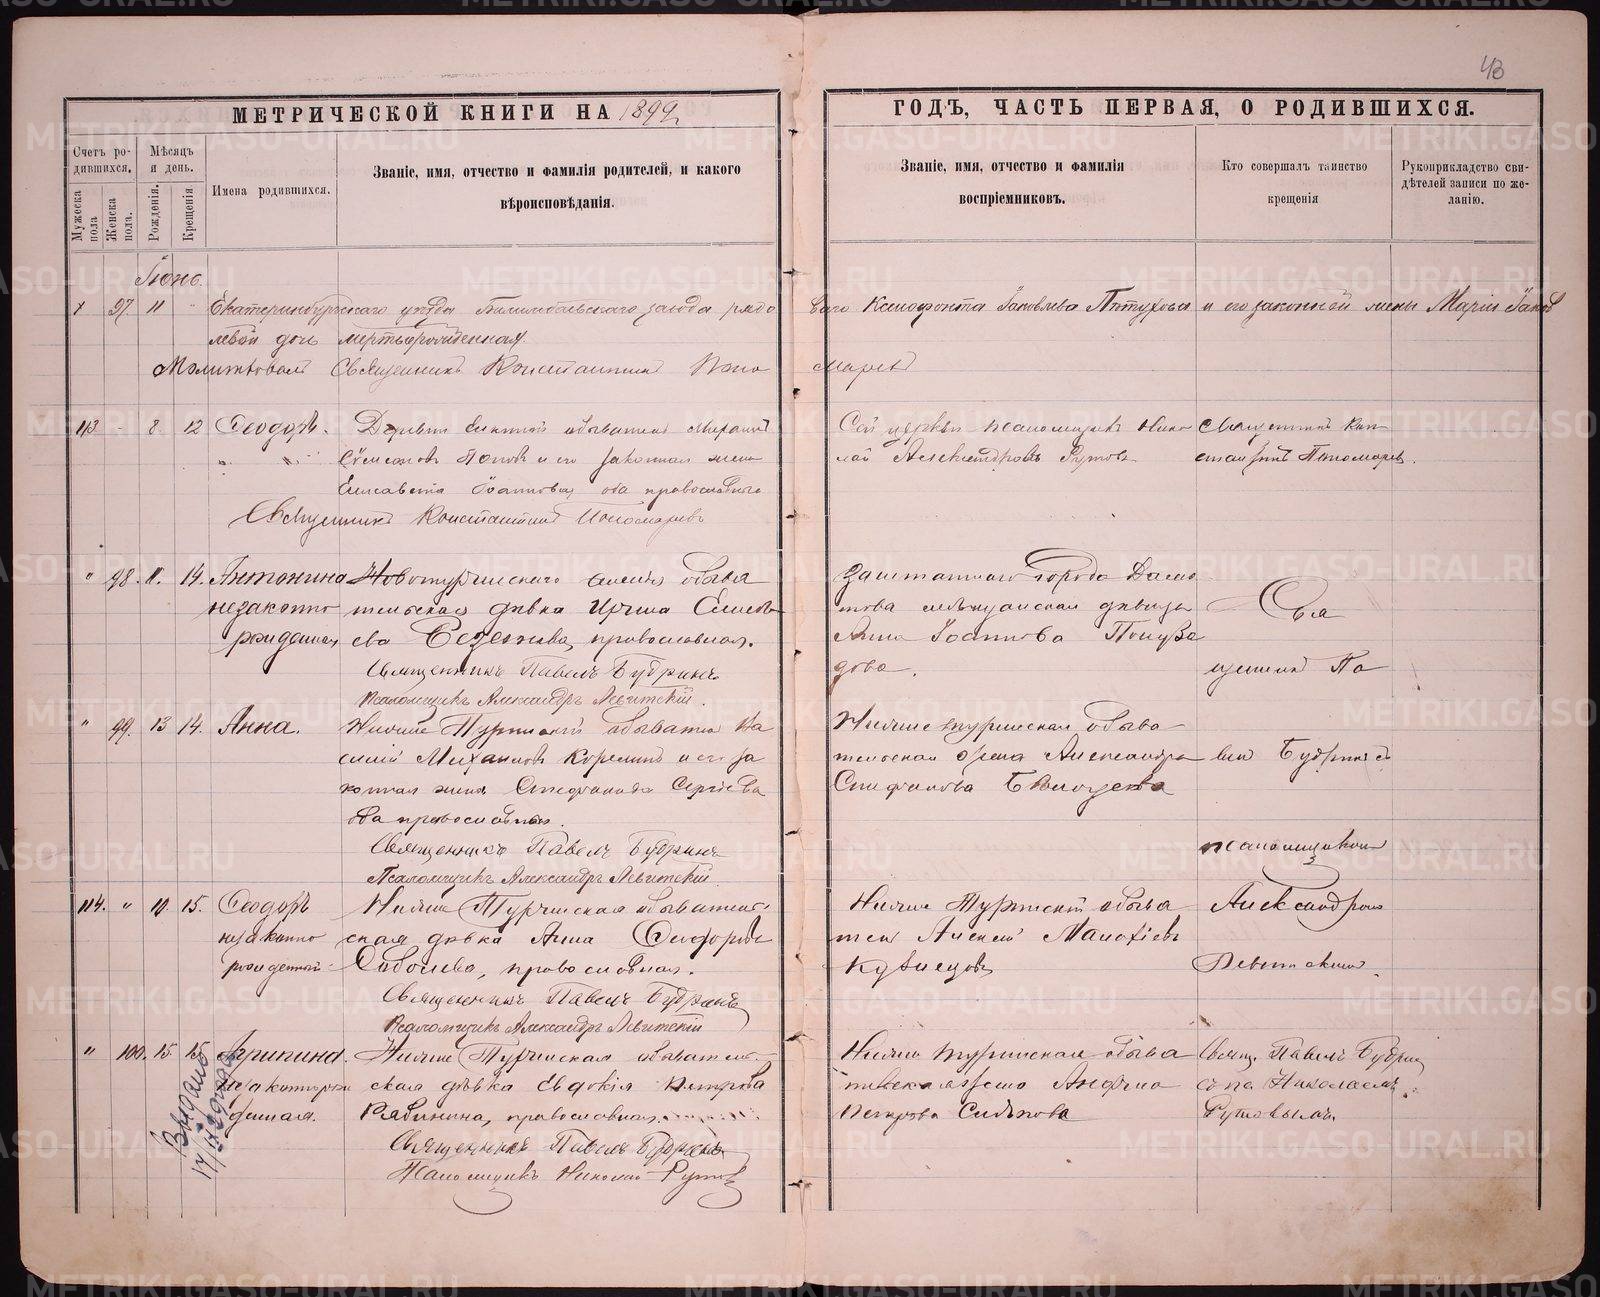 43
МЕТРИЧЕСКОЙ КНИГИ НА 1899
ГОДЪ, ЧАСТЬ ПЕРВАЯ, О РОДИВШИХСЯ.
Счетъ ро-
дившихся.
Мужеска
пола
Женска
пола.
Мѣсяцъ
и день.
Рожденія.
Крещенія
Имена родившихся.
Званіе, имя, отчество и фамилія родителей, и какого
вѣроисповѣданія.
Званіе, имя, отчество и фамилія
воспріемниковъ.
Кто совершалъ таинство
крещенія
Рукоприкладство сви-
дѣтелей записи по же-
ланію.
Іюнь.
97 11 Екатеринбургскаго уѣзда Билимбаевскаго завода рядо
ваго Ксенофонта Іаковлева Птухова и его законной жены Маріи Іаков
левой дочь мертворожденная
Молитвовалъ Священникъ Константинъ Поно
маревъ
113 - 8. 12 Ѳеодоръ.
обыватель Михаилъ
Сѵмеоновъ Поповъ и его законная жена
Елисавета Іоаннова, оба православнаго
Священникъ Константинъ Пономаревъ
Сей церкви псаломщикъ Нико
лай Александровъ Рутовъ
Священникъ Кон-
стантинъ Пономаревъ.
" 98. 11. 14. Антонина
незаконно
рожденная
Новотуринскаго селенія обыва
тельская дѣвка Ирина Елисее
ва православная.
Священникъ Павелъ Будринъ
Псаломщикъ Александръ Левитскій.
Заштатнаго города Далма
това мѣщанская дѣвица
Анна Іоаннова
дова.
Свя
щенникъ Па
" 99. 13 14. Анна.
Нижне Туринскій обыватель Ва
силій Михаиловъ Корелинъ и его за
конная жена Стефанида Сергіева
оба православные.
Священникъ Павелъ Будринъ
Псаломщикъ Александръ Левитскій
Нижне туринская обыва-
тельская жена Александра
Епифанова
велъ Будринъ съ
псаломщикомъ
114. " 10 15. Ѳеодоръ
незаконно
рожденный
Нижне Туринская обыватель-
ская дѣвка Анна Ѳеодорова
Соболева, православная.
Священникъ Павелъ Будринъ
Псаломщикъ Александръ Левитскій
Нижне Туринскій обыва
тель Алексѣй
Кузнецовъ
Александромъ
Левитскимъ.
" 100. 15. 15. Агрипина.
незаконорож
денная.
Нижне Туринская обыватель-
ская дѣвка Евдокія Петрова
Рябинина, православная.
Священникъ Павелъ Будринъ
Псаломщикъ Николай Рутовъ
Нижне туринская обыва
тельская жена Анфиса
Петрова Ситькова
Свящ. Павелъ Будринъ
съ пс. Николаемъ
Рутовымъ.
Выдано
METRIKI.GASO-URAL.RU